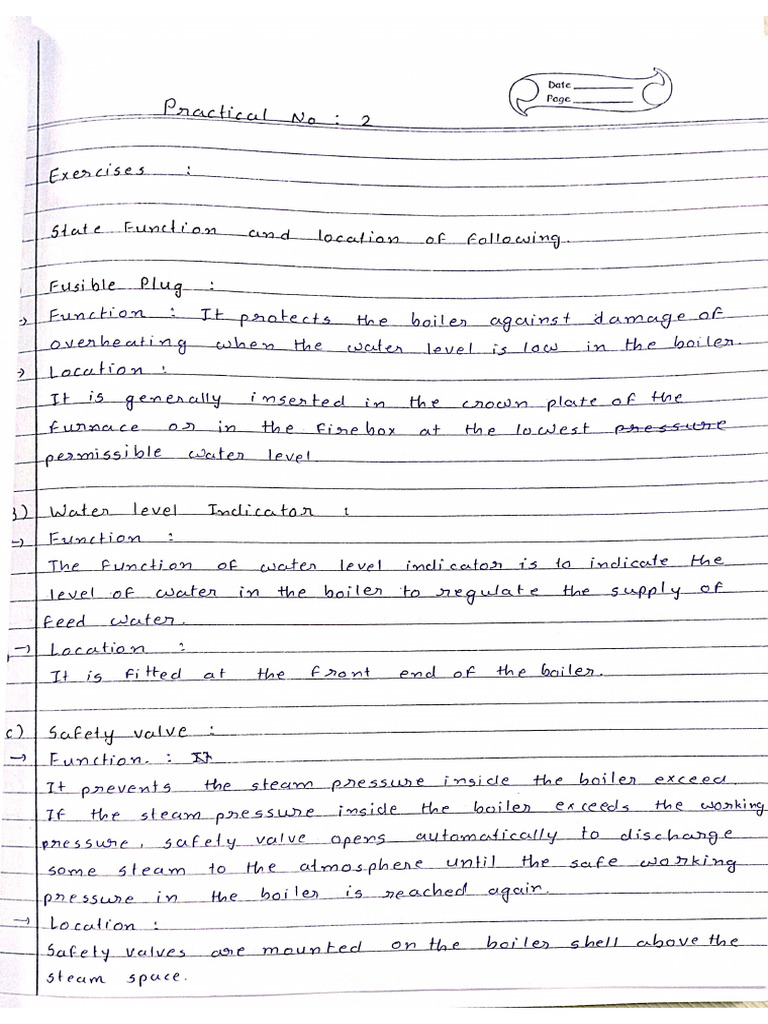 Date
Page
Practical No : 2
Exercises :
State Function and location of following.
Fusible Plug :
→ Function : It protects the boiler against damage of
overheating when the water level is low in the boiler.
→ Location :
It is generally inserted in the crown plate of the
furnace or in the firebox at the lowest pressure
permissible water level
b) Water level Indicator :
→ Function :
The function of water level indicator is to indicate the
level of water in the boiler to regulate the supply of
feed water.
→ Location :
It is fitted at the front end of the boiler.
c) Safety valve :
→ Function. : It
It prevents the steam pressure inside the boiler exceed.
If the steam pressure inside the boiler exceeds the working
pressure, safety valve opens automatically to discharge
some steam to the atmosphere until the safe working
pressure in the boiler is reached again.
→ Location :
Safety valves are mounted on the boiler shell above the
steam space.